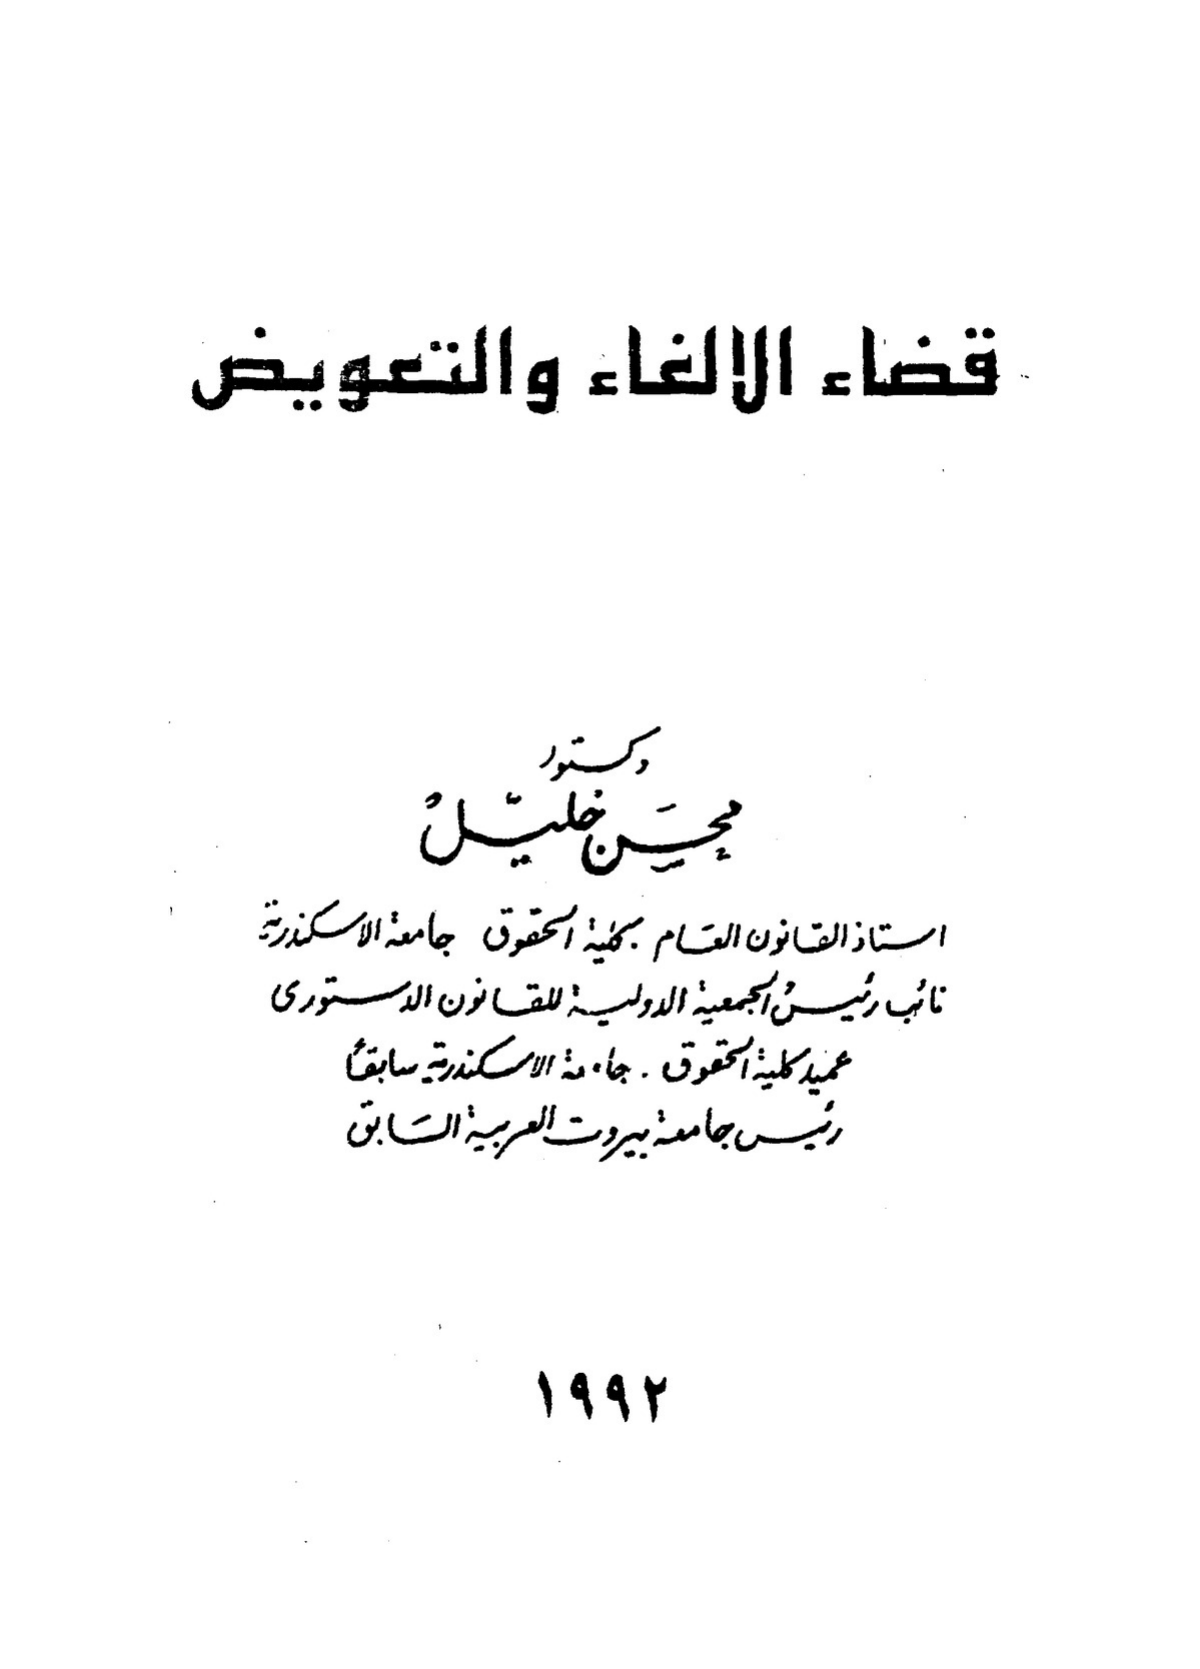 قضاء الالغاء والتعويض
دكتور
محسن خليل
استاذ القانون العام . كلية الحقوق جامعة الاسكندرية
نائب رئيس الجمعية الدولية للقانون الدستورى
عميد كلية الحقوق . جامعة الاسكندرية سابقاً
رئيس جامعة بيروت العربية السابق
١٩٩٢